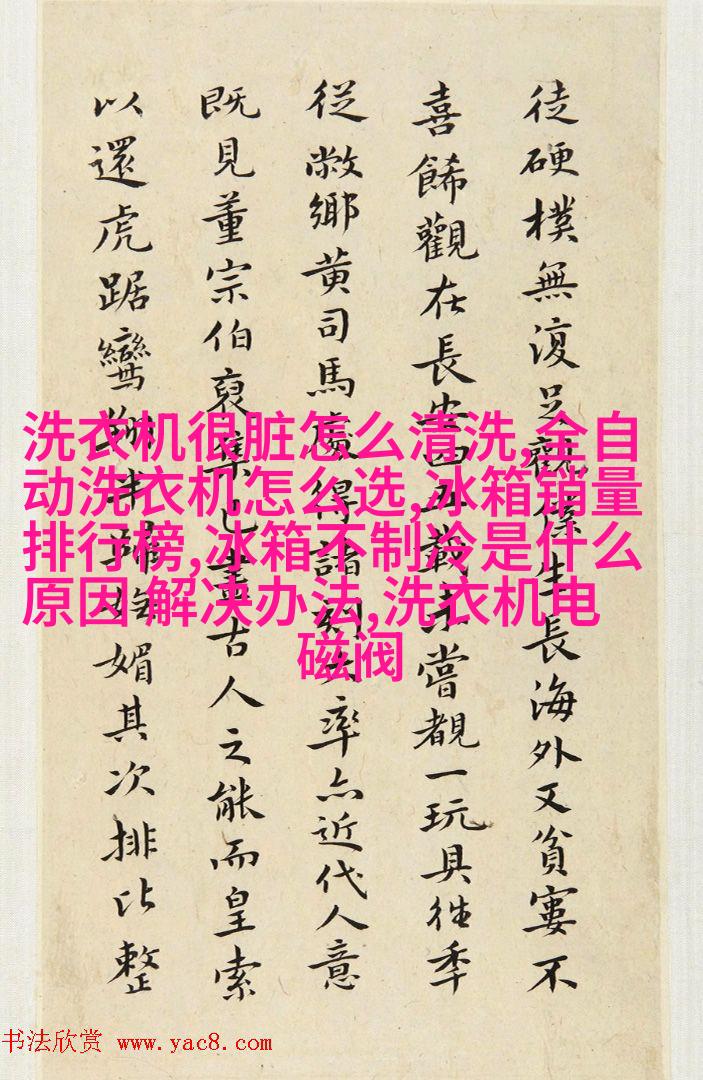 徒硬樸無復足觀僕生長海外又貧窶不
喜餙觀在長安四五載未嘗覩一玩具徃季
從敝鄉黄司馬處得諸刻大率亦近代人意
既見董宗伯裒集已盡古人之能而皇索
以還虎踞鸞翔半歸媚其次排比整
洗衣机很脏怎么清洗,全自
动洗衣机怎么选,冰箱销量
排行榜,冰箱不制冷是什么
原因 解决办法,洗衣机电
磁阀
书法欣赏 www.yac8.com